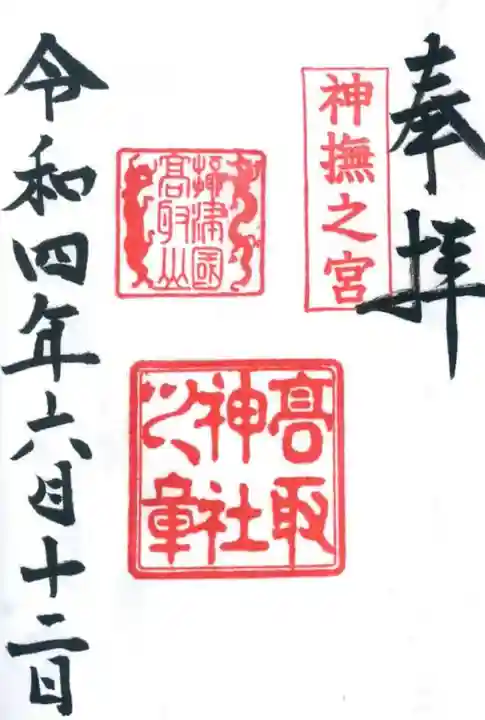 奉拝
神撫之宮
摂津國
高取山
高取
神社
之章
令和四年六月十二日